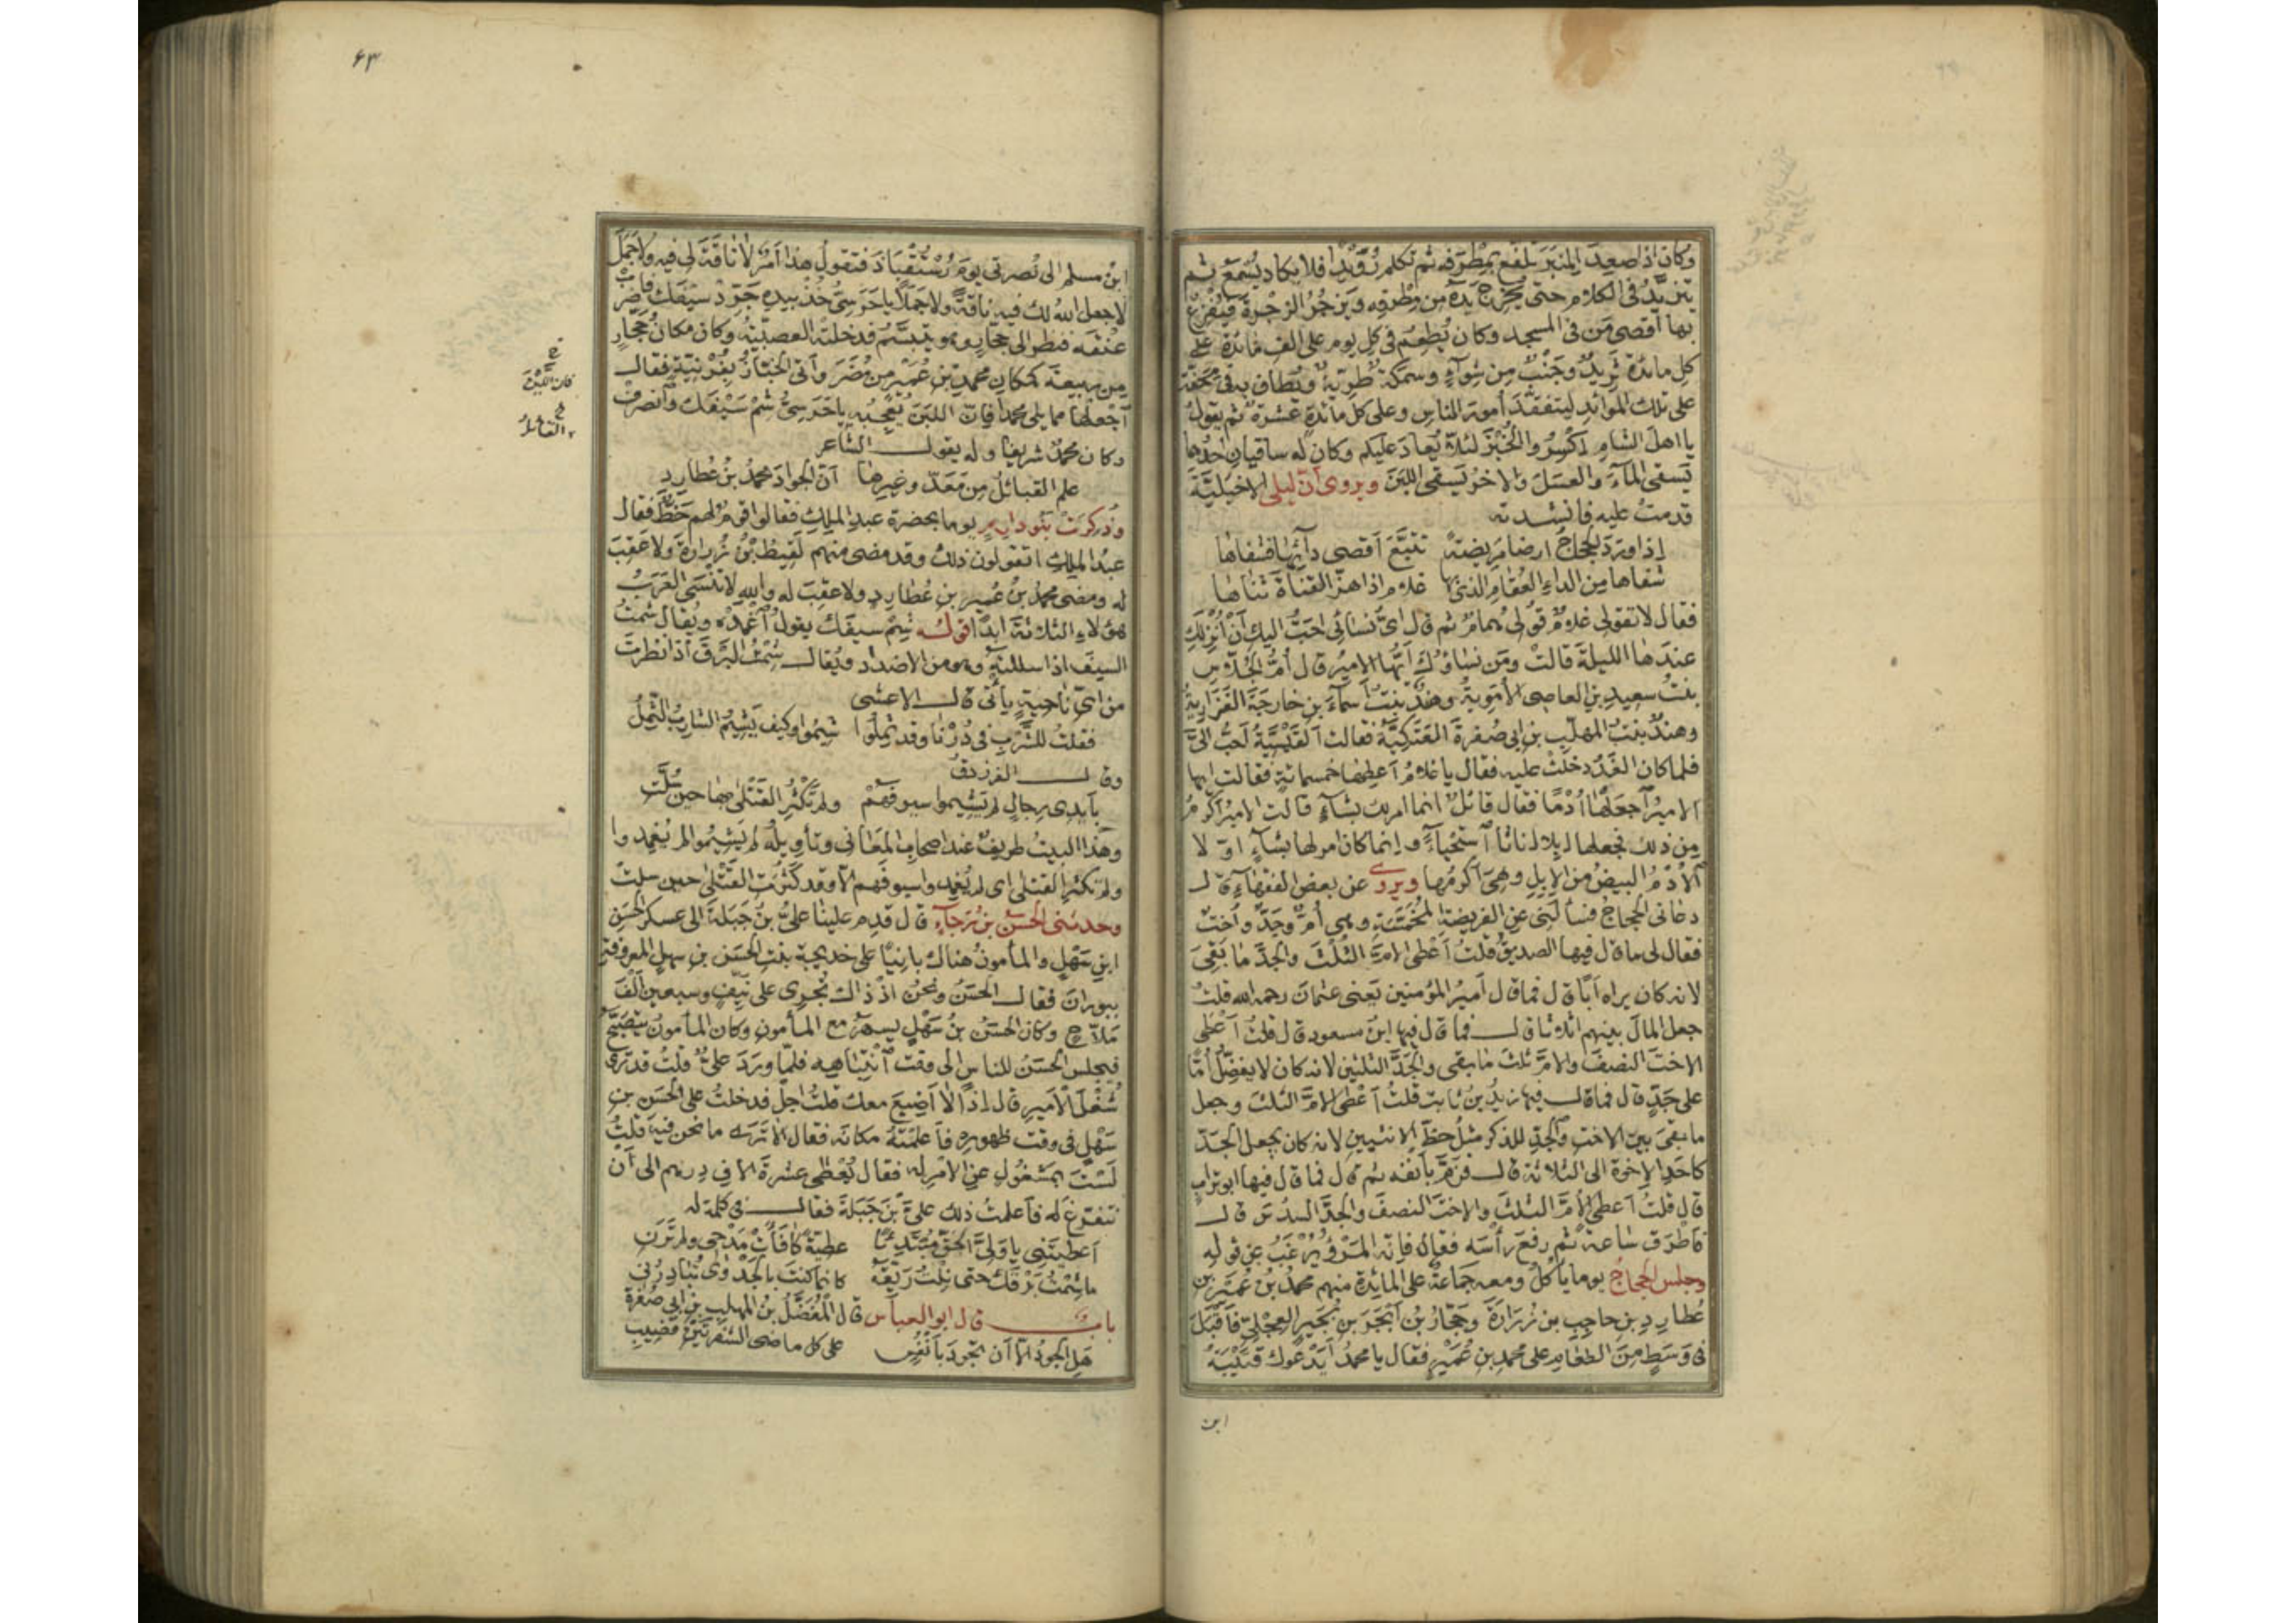 وكان اذا صعد المنبر تلفع بمطرفه ثم تكلم رويدا فلا يكاد يسمع ثم
يتزيد في الكلام حتى يخرج يده من مطرفه ويزجر الزجرة فيفزع
بها اقصى من في المسجد وكان يطعم في كل يوم على الف مائدة على
كل مائدة ثريد وجنب من شواء وسمكة طرية ويطاف به في محفة
على تلك الموائد ليتفقد امور الناس وعلى كل مائدة عشرة ثم يقول
يا اهل الشام اكسروا الخبز لئلا يعاد عليكم وكان له ساقيان احدهما
يسقى الماء والعسل والاخر يسقى اللبن ويروى ان ليلى الاخيلية
قدمت عليه فانشدته
اذا ورد الحجاج ارضا مريضة تتبع اقصى دائها فشفاها
شفاها من الداء العقام الذي بها غلام اذا هز القناة ثناها
فقال لا تقولي غلام قولي همام ثم قال اى نسائى احب اليك ان انزلك
عندها الليلة قالت ومن نساؤك ايها الامير قال ام الجلاس
بنت سعيد بن العاصى الاموية وهند بنت اسماء بن خارجة الفزارية
وهند بنت المهلب بن ابى صفرة العتكية فقالت القيسية احب الى
فلما كان الغد دخلت عليه فقال يا غلام اعطها خمسمائة فقالت ايها
الامير اجعلها ادما فقال قائل انما امر لك بشاء قالت الامير اكرم
من ذلك فجعلها ابلا اناثا استحياء وانما كان امر لها بشاء اولا
الادم البيض من الابل وهى اكرمها ويروى عن بعض الفقهاء قال
دعانى الحجاج فسألنى عن الفريضة المخمسة وهى ام وجد واخت
فقال لى ما قال فيها الصديق قلت اعطى الام الثلث والجد ما بقى
لانه كان يراه ابا قال فما قال امير المؤمنين يعنى عثمان رحمه الله قلت
جعل المال بينهم اثلاثا قال فما قال فيها ابن مسعود قال قلت اعطى
الاخت النصف والام ثلث ما بقى والجد الثلثين لانه كان لا يفضل اما
على جد قال فما قال فيها زيد بن ثابت قلت اعطى الام الثلث وجعل
ما بقى بين الاخت والجد للذكر مثل حظ الانثيين لانه كان يجعل الجد
كاحد الاخوة الى الثلاثة قال فزم بانفه ثم قال فما قال فيها ابو تراب
قال قلت اعطى الام الثلث والاخت النصف والجد السدس قال
فاطرق ساعة ثم رفع رأسه فقال فانه المرء يرغب عن قوله
وجلس الحجاج يوما يأكل ومعه جماعة على المائدة منهم محمد بن عمير بن
عطارد بن حاجب بن زرارة وحجار بن ابجر بن بجير العجلى فاقبل
فى وسط من الطعام على محمد بن عمير فقال يا محمد ايدعوك قتيبة
ابن
۶۳
ابن مسلم الى نصرتى يوم رستقباذ فتقول هذا امر لا ناقة لى فيه ولا جمل
لا جعل الله لك فيه ناقة ولا جملا يا حرسى خذ بيده جرد سيفك فاضرب
عنقه فنظر الى حجار وهو يتبسم فدخلته العصبية وكان مكان حجار
من ربيعة كمكان محمد بن عمير من مضر واتى الخباز بفرنية فقال
اجعلها مما يلى محمدا فان اللبن يعجبه يا حرسى شم سيفك وانصرف
وكان محمد شريفا وله يقول الشاعر
علم القبائل من معد وغيرها ان الجواد محمد بن عطارد
وذكرت بنو دارم يوما بحضرة عبد الملك فقالوا قوم لهم حظ فقال
عبد الملك اتقولون ذلك وقد مضى منهم لقيط بن زرارة ولا عقب
له ومضى محمد بن عمير بن عطارد ولا عقب له والله لا تنسى العرب
هؤلاء الثلاثة ابدا قوله شم سيفك يقول اغمده ويقال شمت
السيف اذا سللته وهو من الاضداد ويقال شمت البرق اذا نظرت
من اى ناحية يأتى قال الاعشى
فقلت للشرب فى درنا وقد ثملوا شيموا وكيف يشيم الشارب الثمل
وقال الفرزدق
بايدى رجال لم يشيموا سيوفهم ولم تكثر القتلى بها حين سلت
وهذا البيت طريف عند اصحاب المعانى وتأويله لم يشيموا لم يغمدوا
ولم تكثر القتلى اى لم يغمدوا سيوفهم الا وقد كثرت القتلى حين سلت
وحدثنى الحسن بن رجاء قال قدم علينا على بن جبلة الى عسكر الحسن
ابن سهل والمأمون هناك بانيا على خديجة بنت الحسن بن سهل المعروفة
ببوران فقال الحسن ونحن اذ ذاك نجرى على نيف وسبعين الف
ملاح وكان الحسن بن سهل يسهر مع المأمون وكان المأمون يتصبح
فيجلس الحسن للناس الى وقت انتباهه فلما ورد على قلت قد ترى
شغل الامير قال اذا لا اضيع معك قلت اجل فدخلت على الحسن بن
سهل فى وقت ظهوره فاعلمته مكانه فقال الا ترى ما نحن فيه قلت
لست بمشغول عن الامر له فقال يعطى عشرة الاف درهم الى ان
نتفرغ له فاعلمت ذلك على بن جبلة فقال فى كلمة له
اعطيتنى يا ولى الحق مبتدئا عطية كافأت مدحى ولم ترن
ما شمت برقك حتى نلت ريقه كانما كنت بالجدوى تبادرنى
باب قال ابو العباس قال المفضل بن المهلب بن ابى صفرة
هل الجود الا ان تجود بانفس على كل ماضى الشفرتين قضيب